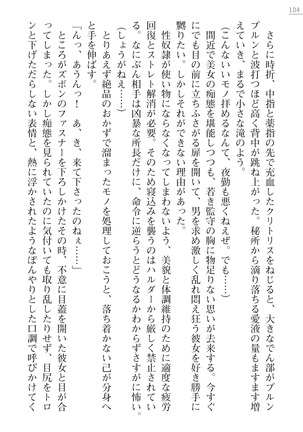 104
　さらに時折、中指と薬指の先で充血したクリトリスをねじると、大きなでん部がプルン
プルンと波打つほど高く背中が跳ね上がった。秘所から滴り落ちる愛液の量もますます増
えていき、まるで小さな滝のよう。
（こんないいモノ拝めるなんて、夜勤も悪くねえぜ。でも……）
　間近で美女の痴態を堪能しつつも、若き監守の胸に物足りない思いが去来する。今すぐ
にでも目の前に立ちふさがる扉を開いて、男を求め激しく乱れ悶え狂う彼女を好き勝手に
嬲りたい。しかしそれができない理由があった。
　性奴隷が使い物にならなくなってしまわないよう、美貌と体調維持のために適度な疲労
回復とストレート解消が必要。そのため寝込みを襲うのはハルダーから厳しく禁止されてい
た。なにぶん相手は凶暴な所長だけに、命令に逆らうとどうなるかわからずさすがに怖い。
（しょうがねえ……）
　とりあえず絶品のおかずで溜まったモノを処理しておこうと、落ち着かない己が分身へ
と手を伸ばす。
「んっ、あうんっ！　あ、き、来て下さったのねぇ……」
　ところがズボンのファスナーを下ろしかけたその時、不意に目蓋を開いた彼女と目が合
ってしまった。しかし痴態を見られていたのに気付いても取り乱したりせず、目尻をトロ
ンと下げただらしない表情と、熱に浮かされたようなぼんやりとした口調で呼びかけてく